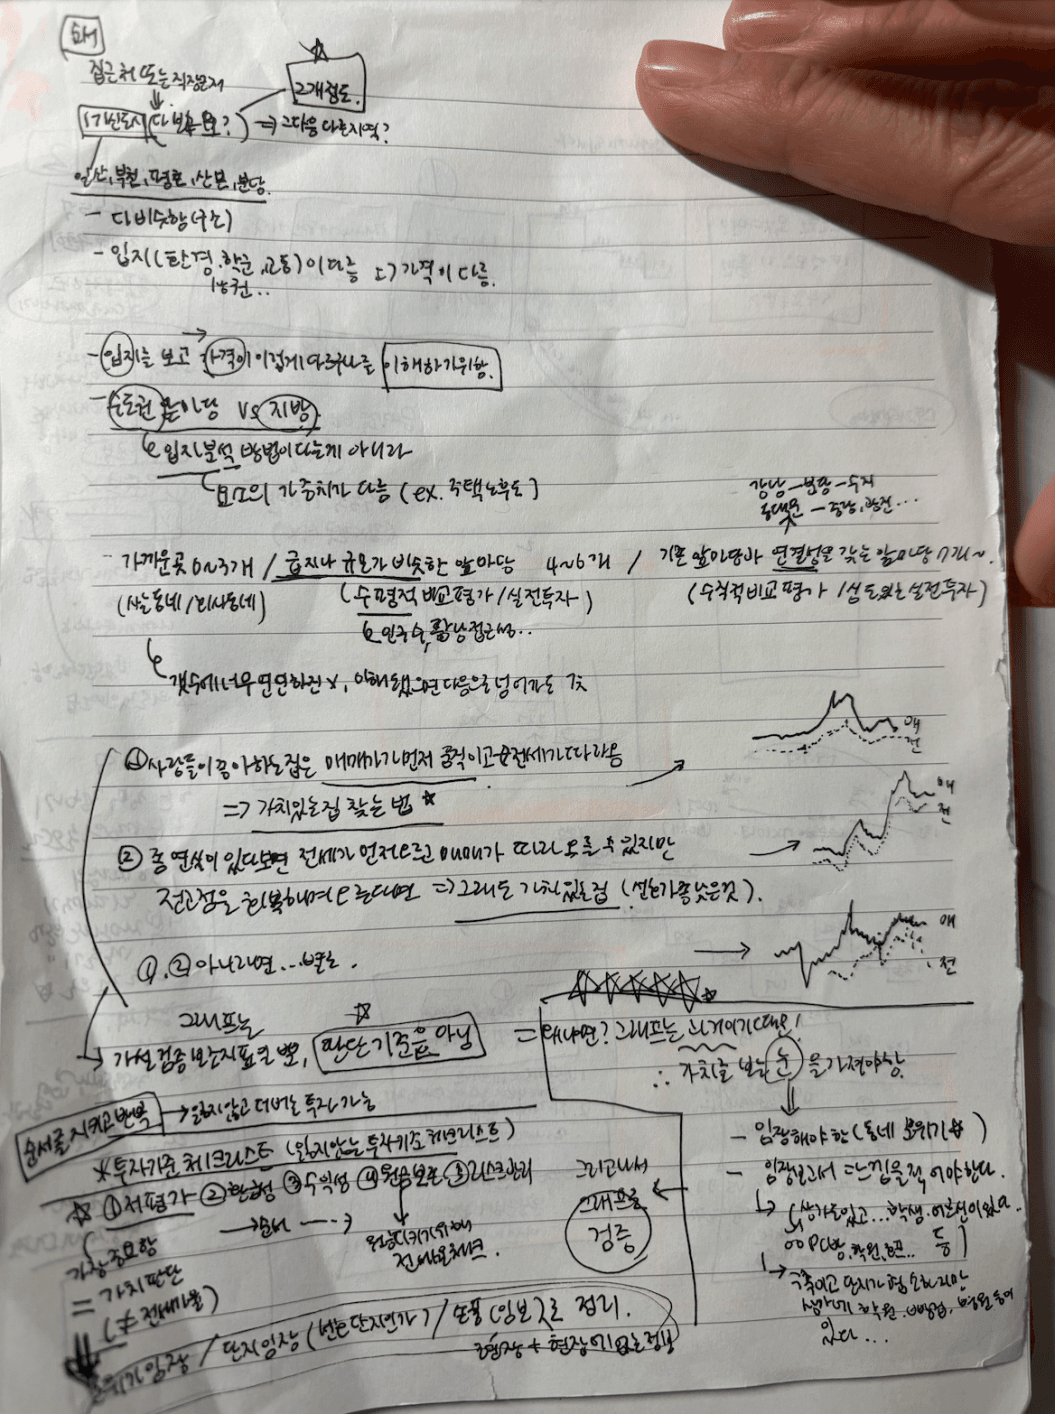 순서
집근처 또는 직장근처
3개정도.
1기신도시 다 보유 요? ⇒ 그다음 다른지역?
일산, 부천, 평촌, 산본, 분당.
- 다 비슷함(구조)
- 입지(환경, 학군, 교통)이 다름 → 가격이 다름.
상권..
- 입지를 보고 → 가격이 이렇게 다르구나를 이해하기위함.
- 수도권 앞마당 vs 지방.
입지분석 방법이 다른게 아니라
요소의 가중치가 다름 (ex. 주택노후도)
강남 - 분당 - 수지
동대문 - 중랑, 광진...
가까운곳 0~3개 / 급지나 규모가 비슷한 앞마당 4~6개 / 기존 앞마당과 연결성을 갖는 앞마당 7개~
(사는동네/회사동네) (수평적 비교평가/실전투자) (수직적비교평가/심도있는 실전투자)
인구수, 강남접근성..
갯수에 너무 연연하진 X, 이해됐으면 다음으로 넘어가도 괜춘
① 사람들이 좋아하는집은 매매가가 먼저 움직이고 전세가 따라옴
매
전
⇒ 가치있는집 찾는 법 ☆
② 좀 연식이 있다보면 전세가 먼저오르고 매매가 따라 오를 수 있지만
매
전
전고점을 회복하며 오른다면 ⇒ 그래도 가치있는집 (선호가 좀 낮은것).
①, ② 아니라면...별로.
매
전
그래프는
가설 검증 보는지표일 뿐, 판단 기준은 아님 = 왜냐면? 그래프는 과거이기때문!
∴ 가치를 보는 눈을 가져야함.
순서를 지키고 반복 → 잃지않고 더버는 투자 가능
※투자기준 체크리스트 (잃지않는 투자기준 체크리스트)
☆ ①저평가 ②환금성 ③수익성 ④원금보존 ⑤리스크관리
→ 순서 ---→
원금지키기위해
전세가율체크.
가장중요함
= 가치판단
(≠ 전세가율)
그리고나서
그래프로
검증
- 임장해야 함 (동네 분위기 등)
- 임장보서 = 느낌을 적어야한다.
상가들있고... 학생, 어르신이 있고
○○PC방, 학원, 등
구축이고 단지가 협소하지만
생각에 학원, 백병원, 병원 등이
있다...
분위기임장 / 단지임장 (번호 단지인가) / 매물(임보)로 정리.
현장 + 현장에없는정보